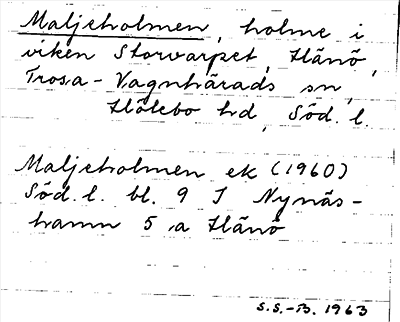 Maljeholmen, holme i
viken Storvarpet, Hänö,
Trosa-Vagnhärads sn,
Hölebo hd, Söd. l.
Maljeholmen ek (1960)
Söd. l. bl. 9 I Nynäs-
hamn 5 a Hänö
S.S.-B. 1963